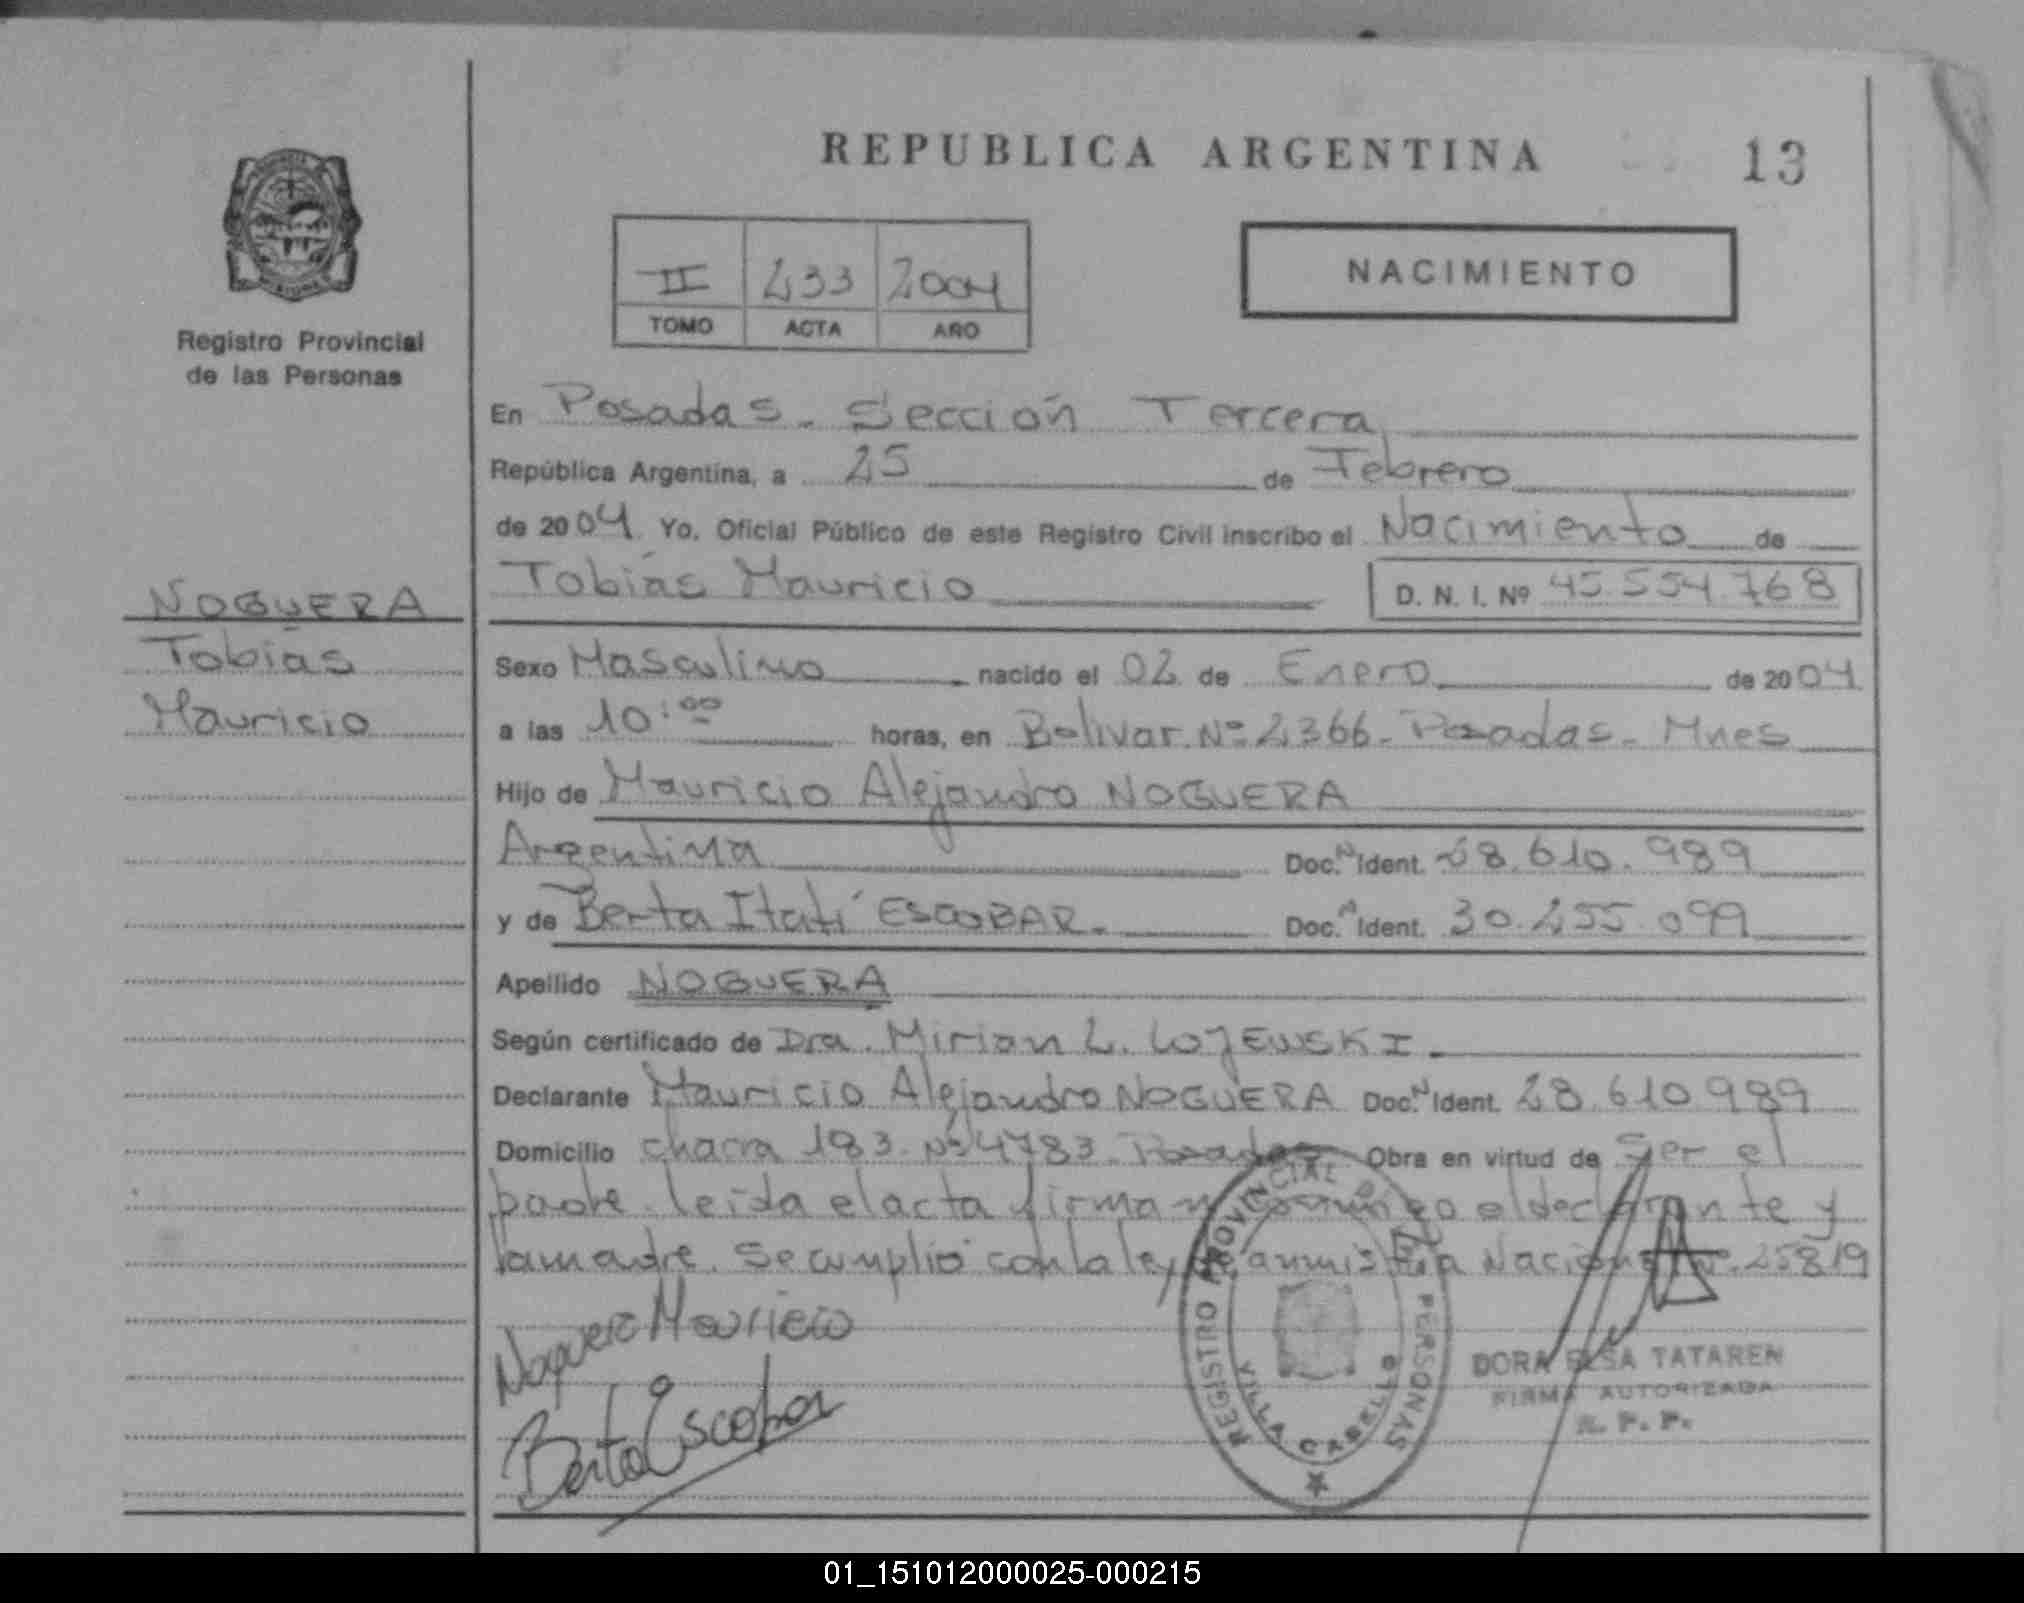 REPUBLICA ARGENTINA
13
II 233 2004
TOMO ACTA AÑO
NACIMIENTO
Registro Provincial
de las Personas
En Posadas. Sección Tercera
República Argentina, a 25 de Febrero
de 2004. Yo, Oficial Público de este Registro Civil inscribo el Nacimiento de
Tobías Mauricio D. N. I. Nº 45.554.768
NOGUERA
Tobías
Mauricio
Sexo Masculino nacido el 02 de Enero de 2004
a las 10:00 horas, en Bolivar Nº 2366. Posadas. Mnes
Hijo de Mauricio Alejandro NOGUERA
Argentina Doc. N Ident. 28.610.989
y de Berta Itatí ESCOBAR. Doc. Ident. 30.255.099
Apellido NOGUERA
Según certificado de Dra. Mirian L. LOJEWSKI
Declarante Mauricio Alejandro NOGUERA Doc. N Ident. 28.610.989
Domicilio chacra 183. Nº 4783. Posadas Obra en virtud de ser el
padre. leída el acta firman conmigo el declarante y
la madre. Se cumplió con la ley de amnistía Nacional Nº 25819
Noguera Mauricio
Berta Escobar
REGISTRO PROVINCIAL DE PERSONAS
VILLA CABELLO
DORA ELSA TATAREN
FIRMA AUTORIZADA
R. P. P.
01_151012000025-000215